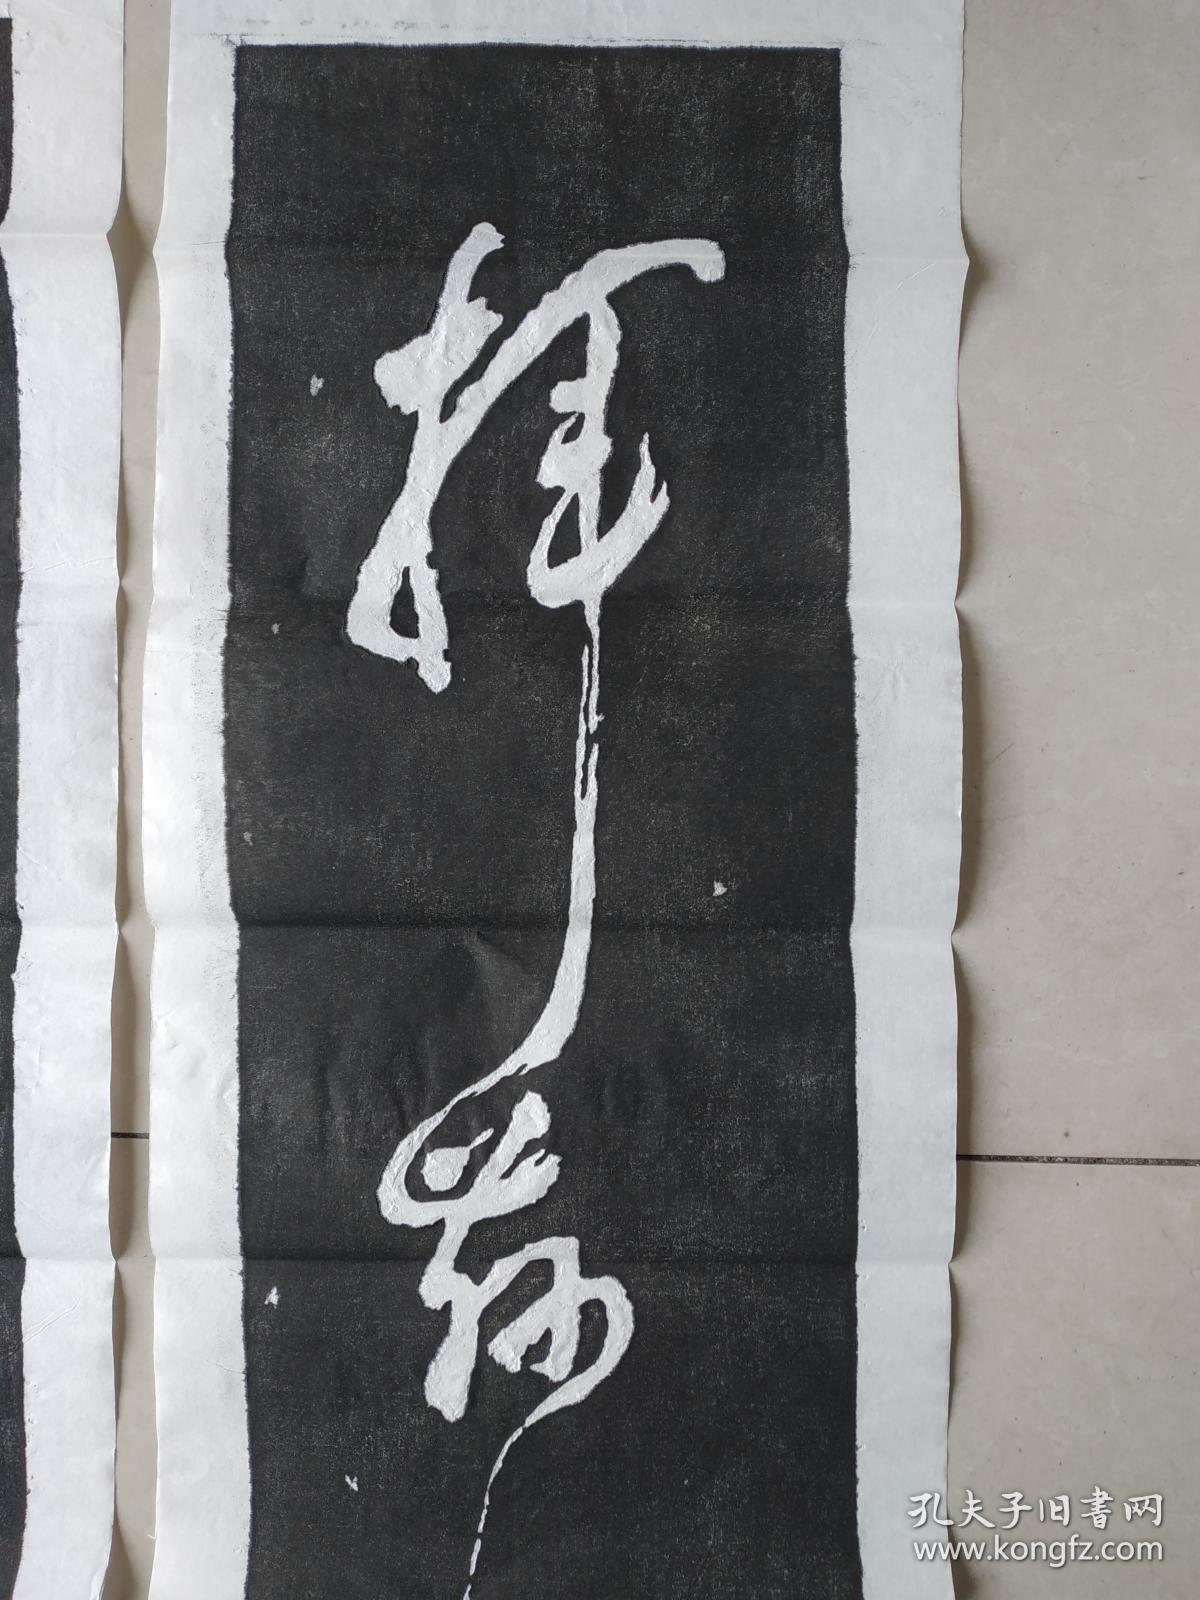 揮
孔夫子旧書网
www.kongfz.com